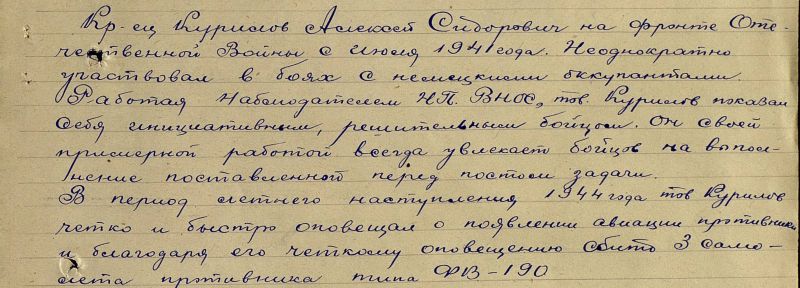 Кр-ец Курилов Алексей Сидорович на фронте Оте-
чественной Войны с июля 1941 года. Неоднократно
участвовал в боях с немецкими оккупантами.
Работая наблюдателем НП. ВНОС, тов. Курилов показал
себя инициативным, решительным бойцом. Он своей
примерной работой всегда увлекает бойцов на выпол-
нение поставленной перед постом задачи.
В период летнего наступления 1944 года тов Курилов
четко и быстро оповещал о появлении авиации противника
и благодаря его четкому оповещению сбито 3 само-
лета противника типа ФВ-190